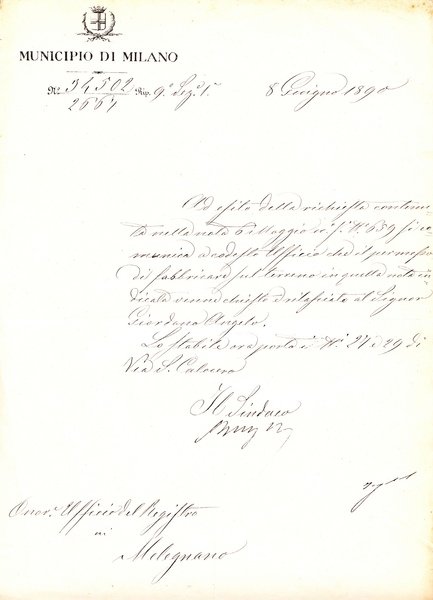 MUNICIPIO DI MILANO
N.º 34502 Rip. 9ª Sez. 1ª
2667
8 Giugno 1890
Ad esito della richiesta contenu=
ta nella nota 6 Maggio N.º 639 si co=
munica a codesto Ufficio che il permesso
di fabbricare sul terreno in quella nota in=
dicata venne chiesto e rilasciato al Signor
Giordano Angelo.
Lo stabile ora porta i N.i 27 e 29 di
Via S. Calocero
Il Sindaco
Onor.e Ufficio del Registro
in
Melegnano